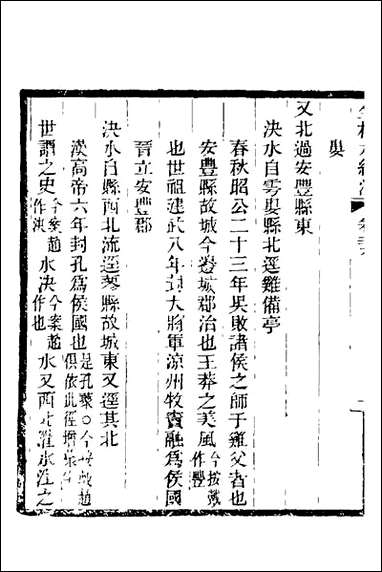 婁
又北過安豐縣東
決水自雩婁縣北逕雞備亭
春秋昭公二十三年吳敗諸侯之師于雞父者也
安豐縣故城今邊城郡治也王莽之美風今按戴作豐
也世祖建武八年封大將軍涼州牧竇融爲侯國
晉立安豐郡
決水自縣西北流逕蓼縣故城東又逕其北
漢高帝六年封孔爲侯國也是孔藂〇今按戴趙俱依此
世謂之史今案趙作澳水決今案趙作也水又西北灌水注之